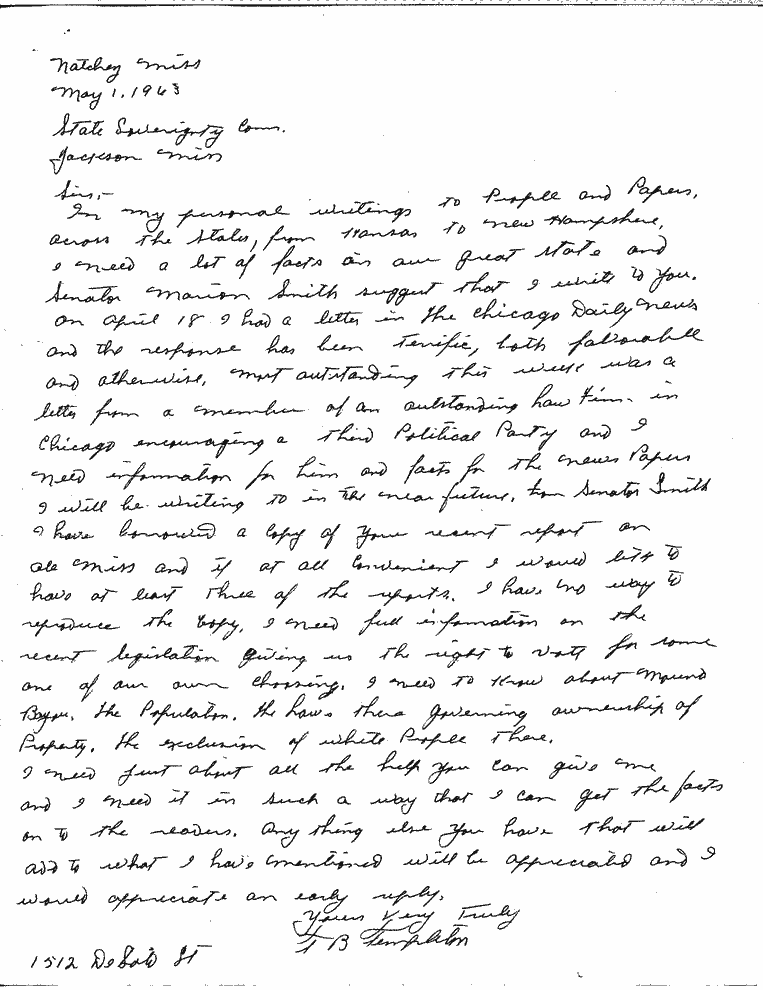 Natchez Miss
May 1, 1963
State Soverignty Com.
Jackson Miss
Sirs,-
In my personal writings to People and Papers,
across the States, from Kansas to New Hampshire,
I need a lot of facts on our great state and
Senator Marion Smith suggest that I write to you.
On April 18 I had a letter in the Chicago Daily News
and the response has been terrific, both favorable
and otherwise. Most outstanding this week was a
letter from a member of an outstanding Law Firm in
Chicago encouraging a third Political Party and I
need information for him and facts for the News Papers
I will be writing to in the near future. From Senator Smith
I have borrowed a copy of your recent report on
Ole Miss and if at all convenient I would like to
have at least three of the reports. I have no way to
reproduce the copy. I need full information on the
recent legislation giving us the right to vote for some
one of our own choosing. I need to know about Mound
Bayou. The Population. The Laws there governing ownership of
Property. The exclusion of white People there.
I need just about all the help you can give me
and I need it in such a way that I can get the facts
on to the readers. Any thing else you have that will
add to what I have mentioned will be appreciated and I
would appreciate an early reply.
Yours Very Truly
F B Templeton
1512 DeSoto St